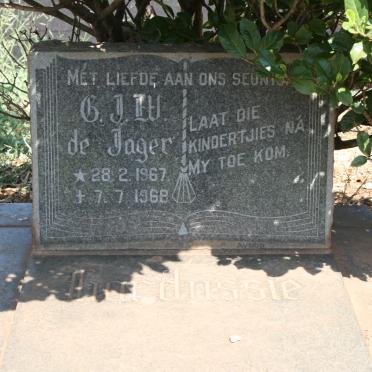 MET LIEFDE AAN ONS SEUNTJIE
G.J.W.
de Jager
★ 28.2.1967
✝ 7.7.1968
LAAT DIE
KINDERTJIES NA
MY TOE KOM.